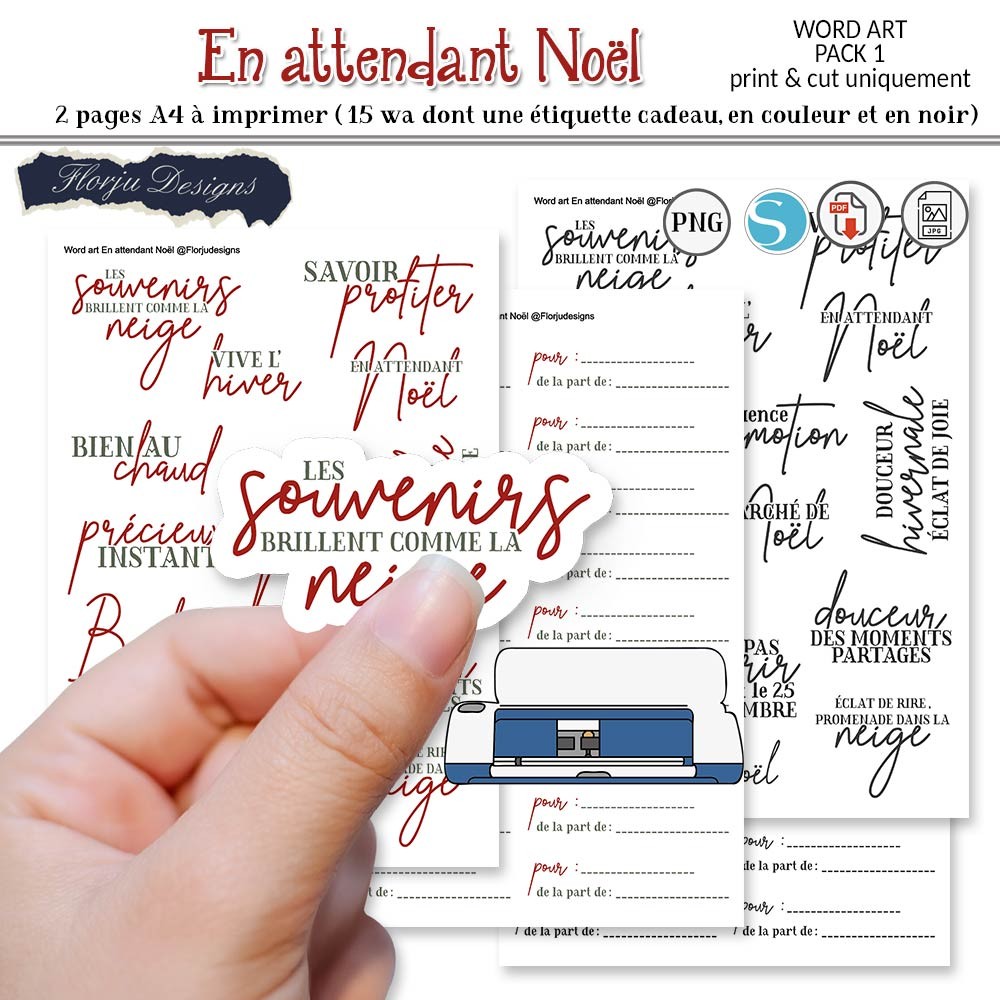 En attendant Noël
WORD ART
PACK 1
print & cut uniquement
2 pages A4 à imprimer ( 15 wa dont une étiquette cadeau, en couleur et en noir)
Florju Designs
Word art En attendant Noël @Florjudesigns
LES
souvenirs
BRILLENT COMME LA
neige
SAVOIR
profiter
VIVE L'
hiver
EN ATTENDANT
Noël
BIEN AU
chaud
précieux
INSTANT
LES
souvenirs
BRILLENT COMME LA
neige
Word art En attendant Noël @Florj
LES
souvenirs
BRILLENT COMME LA
neige
PNG
S
PDF
JPG
profiter
EN ATTENDANT
Noël
motion
DOUCEUR
hivernale
ÉCLAT DE JOIE
ARCHÉ DE
Noël
douceur
DES MOMENTS
PARTAGÉS
PAS
rir
le 25
MBRE
ÉCLAT DE RIRE,
PROMENADE DANS LA
neige
oël
nt Noël @Florjudesigns
pour :
de la part de :
pour :
de la part de :
pour :
de la part de :
part de :
pour :
de la part de :
pour :
de la part de :
pour :
de la part de :
t de :
de la part de :
pour :
de la part de :
pour :
de la part de :